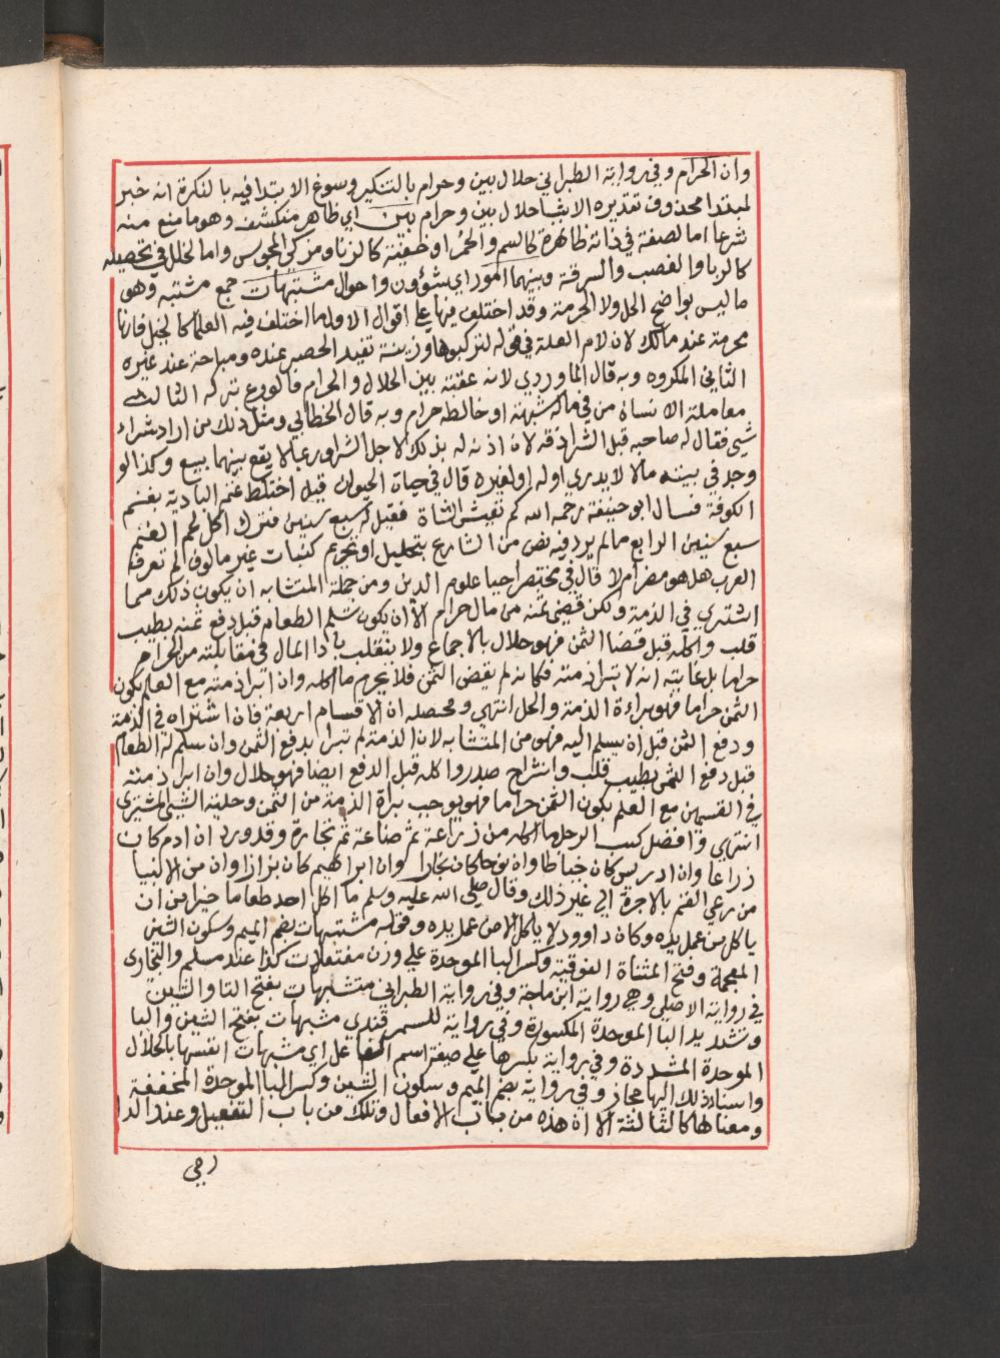 وان الحرام وفي رواية الطبراني حلال بين وحرام بالتنكير وسوغ الابتدا فيه بالنكرة انه خبر
لمبتدا محذوف تقديره الاشيا حلال بين وحرام بين اي ظاهر منكشف وهو ما منع منه
شرعا اما لصفة في ذاته ظاهرة كالسم والخمر او خفية كالزنا ومزكى المجوس واما لخلل في تحصيله
كالربا والغصب والسرقة وبينهما امور اي شؤون واحوال مشتبهات جمع مشتبه وهو
ما ليس بواضح الحل ولا الحرمة وقد اختلف فيها على اقوال الاول ما اختلف فيه العلما كالخيل فانها
محرمة عند مالك لان لام العلة في قوله لتركبوها وزينة تفيد الحصر عنده ومباحة عند غيره
الثاني المكروه وبه قال الماوردي لانه عقبة بين الحلال والحرام فالورع تركه الثالث
معاملة الانسان من في ماله شبهة او خالطه حرام وبه قال الخطابي ومثل ذلك من اراد شراء
شيى فقال له صاحبه قبل الشرا ذقه لان اذنه له بذلك لاجل الشرا وربما لا يقع بينهما بيع وكذا لو
وجد في بيته مالا لا يدري اوله او لغيره قال في حياة الحيوان قيل اختلط غنم البادية بغنم
الكوفة فسال ابو حنيفة رحمه الله كم تعيش الشاة فقيل له سبع سنين فترك اكل لحم الغنم
سبع سنين الرابع ما لم يرد فيه نص من الشارع بتحليل او تحريم كنبات غير مالوف لم تعرفه
العرب هل هو مضر ام لا قال في مختصر احيا علوم الدين ومن جملة المتشابه ان يكون ذلك مما
اشتري في الذمة ولكن قضى ثمنه من مال حرام الا ان يكون تسلم الطعام قبل دفع ثمنه بطيب
قلب واكله قبل قضا الثمن فهو حلال بالاجماع ولا ينقلب باداالمال في مقابلته من الحرام
حراما بل غايته انه لا تبرا ذمته فكانه لم يقض الثمن فلا يحرم ما اكله وان ابرا ذمته مع العلم بكون
الثمن حراما فهو براءة الذمة والحل انتهي ومحصله ان الاقسام اربعة فان اشتراه في الذمة
ودفع الثمن قبل ان يسلم اليه فهو من المتشابه لان الذمة لم تبرا بدفع الثمن وان سلم له الطعام
قبل دفع الثمن بطيب قلب وانشراح صدر واكله قبل الدفع ايضا فهو حلال وان ابرا ذمته
في القسمين مع العلم بكون الثمن حراما فهو يوجب براة الذمة من الثمن وحلية الشيى المشترى
انتهي وافضل كسب الرجل ما اكله من زراعة ثم صناعة ثم تجارة وقد ورد ان ادم كان
زراعا وان ادريس كان خياطا وان نوحا كان نجارا وان ابراهيم كان بزازا وان من الانبيا
من رعي الغنم بالاجرة الي غير ذلك وقال صلى الله عليه وسلم ما اكل احد طعاما خيرا من ان
ياكل من عمل يده وكان داوود لا ياكل الا من عمل يده وقوله مشتبهات بضم الميم وسكون الشين
المعجمة وفتح المثناة الفوقية وكسر البا الموحدة علي وزن مفتعلات كذا عند مسلم والبخاري
في رواية الاصيلي وهي رواية ابن ماجة وفي رواية الطبراني متشبهات بفتح التا والشين
وتشديد البا الموحدة المكسورة وفي رواية للسمرقندي مشبهات بفتح الشين والبا
الموحدة المشددة وفي رواية بكسرها علي صيغة اسم الفاعل اي مشبهات انفسها بالحلال
واسناد ذلك اليها مجاز وفي رواية بضم الميم وسكون الشين وكسر البا الموحدة المخففة
ومعناها كالثالثة الا ان هذه من باب الافعال وتلك من باب التفعيل وعند الدا
رمي